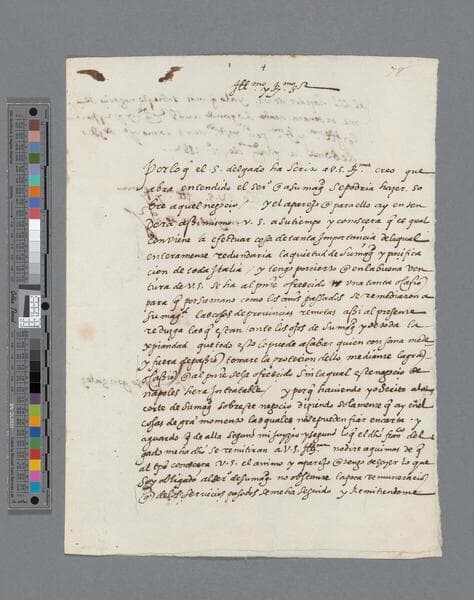 78
Ill^mo y R^mo S^r
Por lo q̃ el S. delgado ha scrito a V.S. Ill^ma creo que
abra entendido el serv^o @ a su mag^d se podria hazer, so
bre aquel negocio / y el aparejo @ para ello ay en ten
dera assi mismo. V. S. a su tiempo y conoscera q̃ el qual
conviene a efectuar cosa de tanta Importancia de la qual
enteramente redundaria la quietud de su mag^d y pacifica
cion de toda Italia / y tengo por cierto @ en la buena ven
tura de V.S. se ha al pñte ofrecido una tanta ocasiõ
para q̃ por su mano como los años passados se remitieron a
su mag^t las cosas de provincias remotas assi al presente
reduzga las q̃ estan ante los ojos de su mag^d y de toda la
xpiandad que todo esto lo puede acabar quien con sana mente
y fuera de passiõ tomare la protection dello mediante la gran
ocasiõ @ al pñte se la ofrecido sin la qual este negocio de
napoles fuera Intratable / y porq̃ haviendo yo scrito a la
corte de su mag^d sobre este negocio diziendo solamente q̃ ay en el
cosas de gra momento las quales no se pueden fiar en carta. y
aguardo q̃ de alla segun mi supp^on y segun lo q̃ el dho del
gado me ha dho se remitiran a V.S. Ill^ma no dire aqui mas de q̃
al tpo conoscera V.S. el animo y aparejo @ tengo de servir lo que
soy obligado al ser^o de su mag^d no obstante la poca remuneraciõ
@ de los servicios passados se me ha seguido y Remitiendome